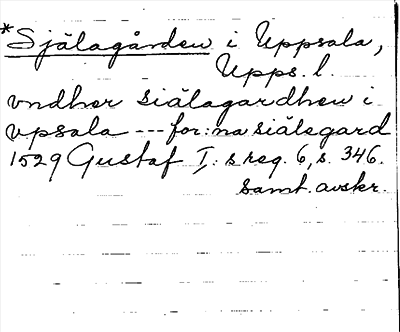 *Själagården i Uppsala,
Upps. l.
vndher siälagardhen i
vpsala --- for:na siälegard
1529 Gustaf I:s reg. 6, s. 346.
samt. avskr.